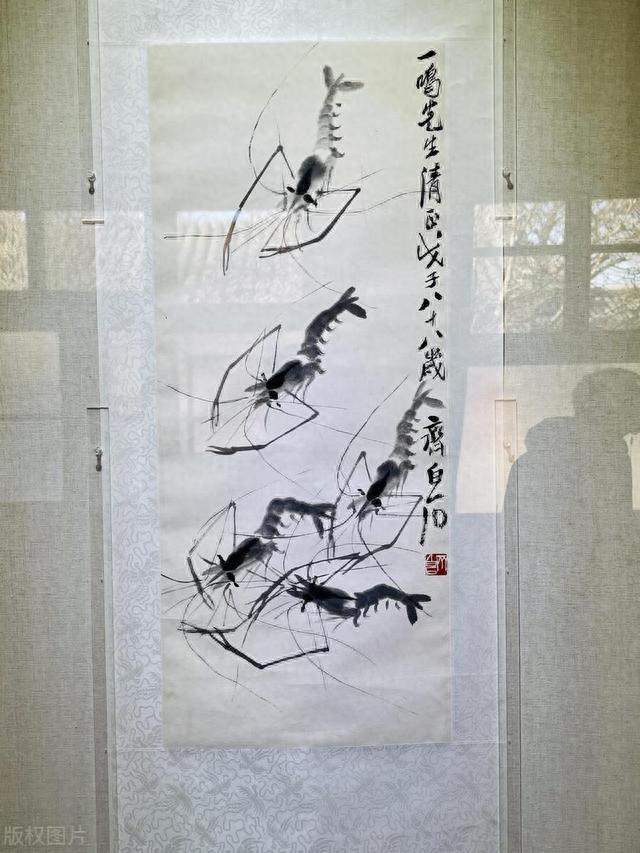 一鳴先生清正戊子八十八歲 齊白石
版权图片